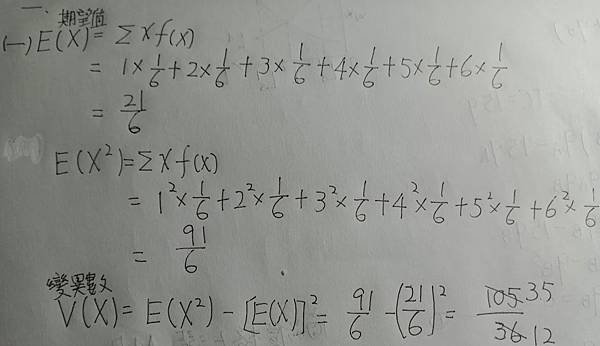 一、
期望值
(一) E(X) = Σxf(x)
= 1×1/6+2×1/6+3×1/6+4×1/6+5×1/6+6×1/6
= 21/6
E(X²)=Σxf(x)
= 1²×1/6+2²×1/6+3²×1/6+4²×1/6+5²×1/6+6²×1/6
= 91/6
變異數
V(X)= E(X²)-[E(X)]²= 91/6-(21/6)²= 105/36 35/12